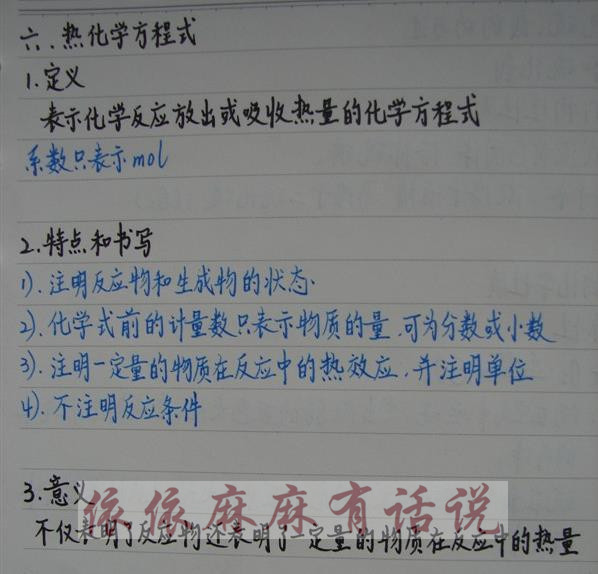 六、热化学方程式
1.定义
表示化学反应放出或吸收热量的化学方程式
系数只表示mol
2.特点和书写
1).注明反应物和生成物的状态.
2).化学式前的计量数只表示物质的量.可为分数或小数
3).注明一定量的物质在反应中的热效应.并注明单位
4).不注明反应条件
3.意义
依依麻麻有话说
不仅表明了反应物还表明了一定量的物质在反应中的热量